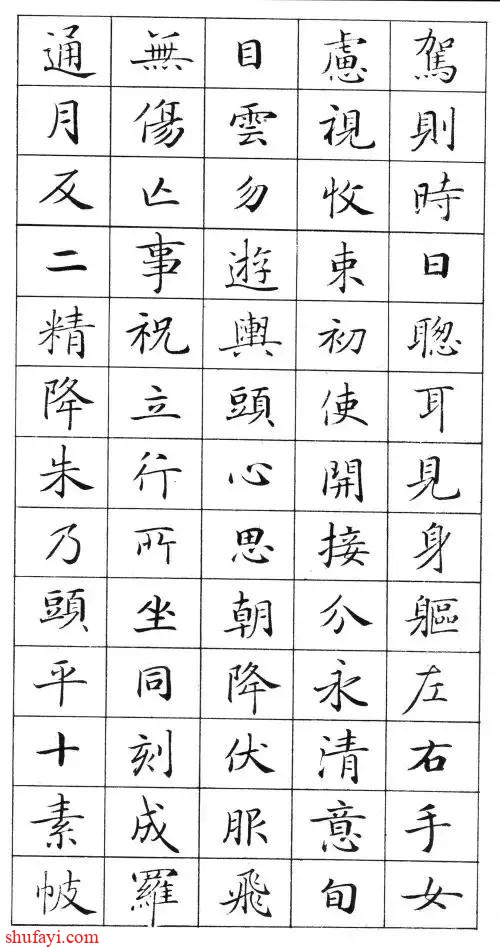 駕則時日聰耳見身軀左右手女
慮視收束初使開接分永清意旬
目雲勿遊輿頭心思朝降伏服飛
無傷亡事祝立行所坐同刻成羅
通月反二精降朱乃頭平十素帔
shufayi.com